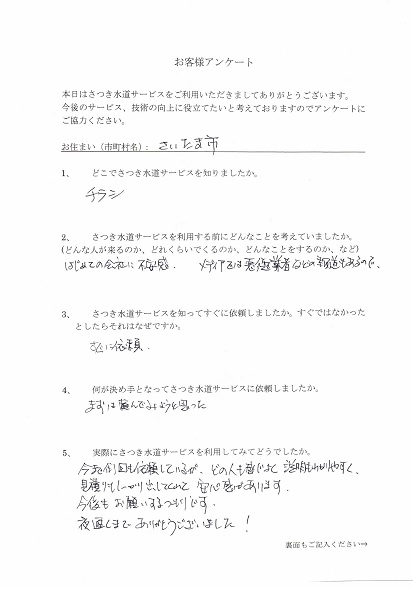 お客様アンケート
本日はさつき水道サービスをご利用いただきましてありがとうございます。
今後のサービス、技術の向上に役立てたいと考えておりますのでアンケートに
ご協力ください。
お住まい（市町村名）： さいたま市
1、 どこでさつき水道サービスを知りましたか。
チラシ
2、 さつき水道サービスを利用する前にどんなことを考えていましたか。
(どんな人が来るのか、どれくらいでくるのか、どんなことをするのか、など)
はじめての会社に不安感、 メディアでは悪徳業者などの報道もあるので、
3、 さつき水道サービスを知ってすぐに依頼しましたか。すぐではなかった
としたらそれはなぜですか。
すぐに依頼。
4、 何が決め手となってさつき水道サービスに依頼しましたか。
まずは頼んでみようと思った
5、 実際にさつき水道サービスを利用してみてどうでしたか。
今まで何回も依頼しているが、どの人も感じよく 説明もわかりやすく、
見積りもしっかり出してくれて 安心感があります。
今後も お願いするつもりです。
夜遅くまで ありがとうございました！
裏面もご記入ください⇒